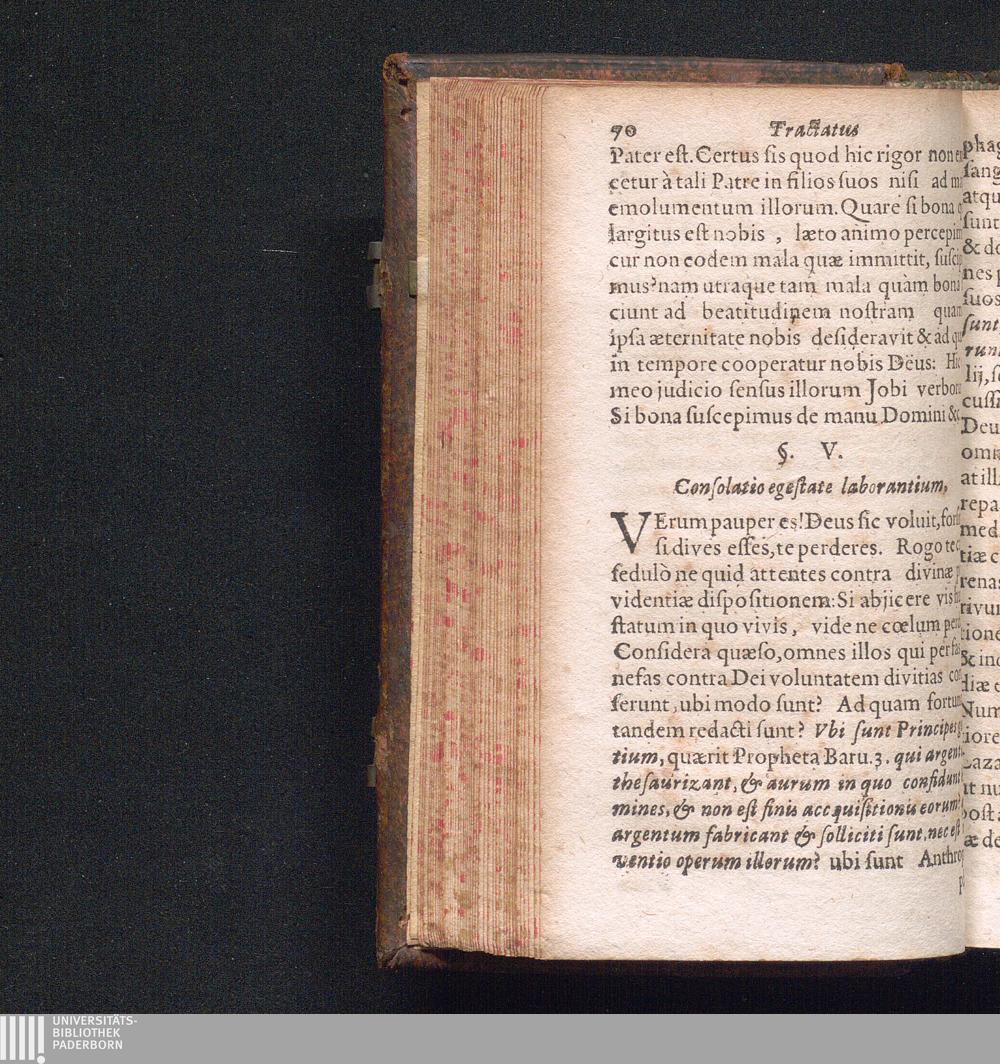 70 Tractatus
Pater est. Certus sis quod hic rigor non
cetur à tali Patre in filios suos nisi ad
emolumentum illorum. Quare si bona
largitus est nobis , læto animo percepim
cur non eodem mala quæ immittit, suscip
mus? nam utraque tam mala quàm bona
ciunt ad beatitudinem nostram quam
ipsa æternitate nobis desideravit & ad
in tempore cooperatur nobis Deus: Hic
meo judicio sensus illorum Jobi verbo
Si bona suscepimus de manu Domini &c
§. V.
Consolatio egestate laborantium.
VErum pauper es! Deus sic voluit, fort
si dives esses, te perderes. Rogo te
sedulò ne quid attentes contra divinæ
videntiæ dispositionem: Si abjicere vis
statum in quo vivis, vide ne cœlum per
Considera quæso, omnes illos qui per fas
nefas contra Dei voluntatem divitias con
serunt, ubi modo sunt? Ad quam fortun
tandem redacti sunt? Vbi sunt Principes
tium, quærit Propheta Baru. 3. qui argent
thesaurizant, & aurum in quo confidunt
mines, & non est finis accquisitionis eorum?
argentum fabricant & solliciti sunt, nec est
ventio operum illorum? ubi sunt Anthro
phag
sang
atqu
sunt
& de
nes
suos
sunt
run
lij, s
cussi
Deu
omn
at ill
repa
med
tiæ c
renas
rivu
tione
& in
diæ
Num
iore
aza
ut nu
post
æ de
UNIVERSITÄTS-
BIBLIOTHEK
PADERBORN